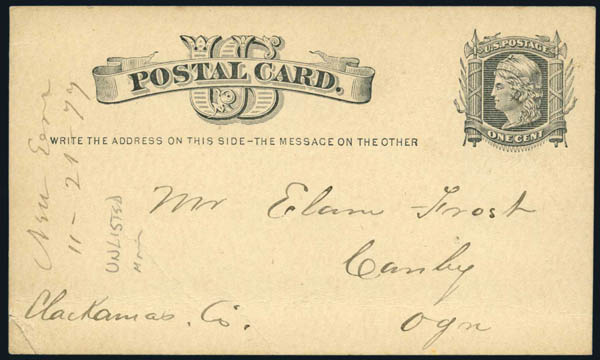 US
POSTAL CARD.
U.S. POSTAGE
ONE CENT
WRITE THE ADDRESS ON THIS SIDE-THE MESSAGE ON THE OTHER
New Eora
11-21-79
UNLISTED
Mr Elam Frost
Canby
Clackamas. Co. Ogn